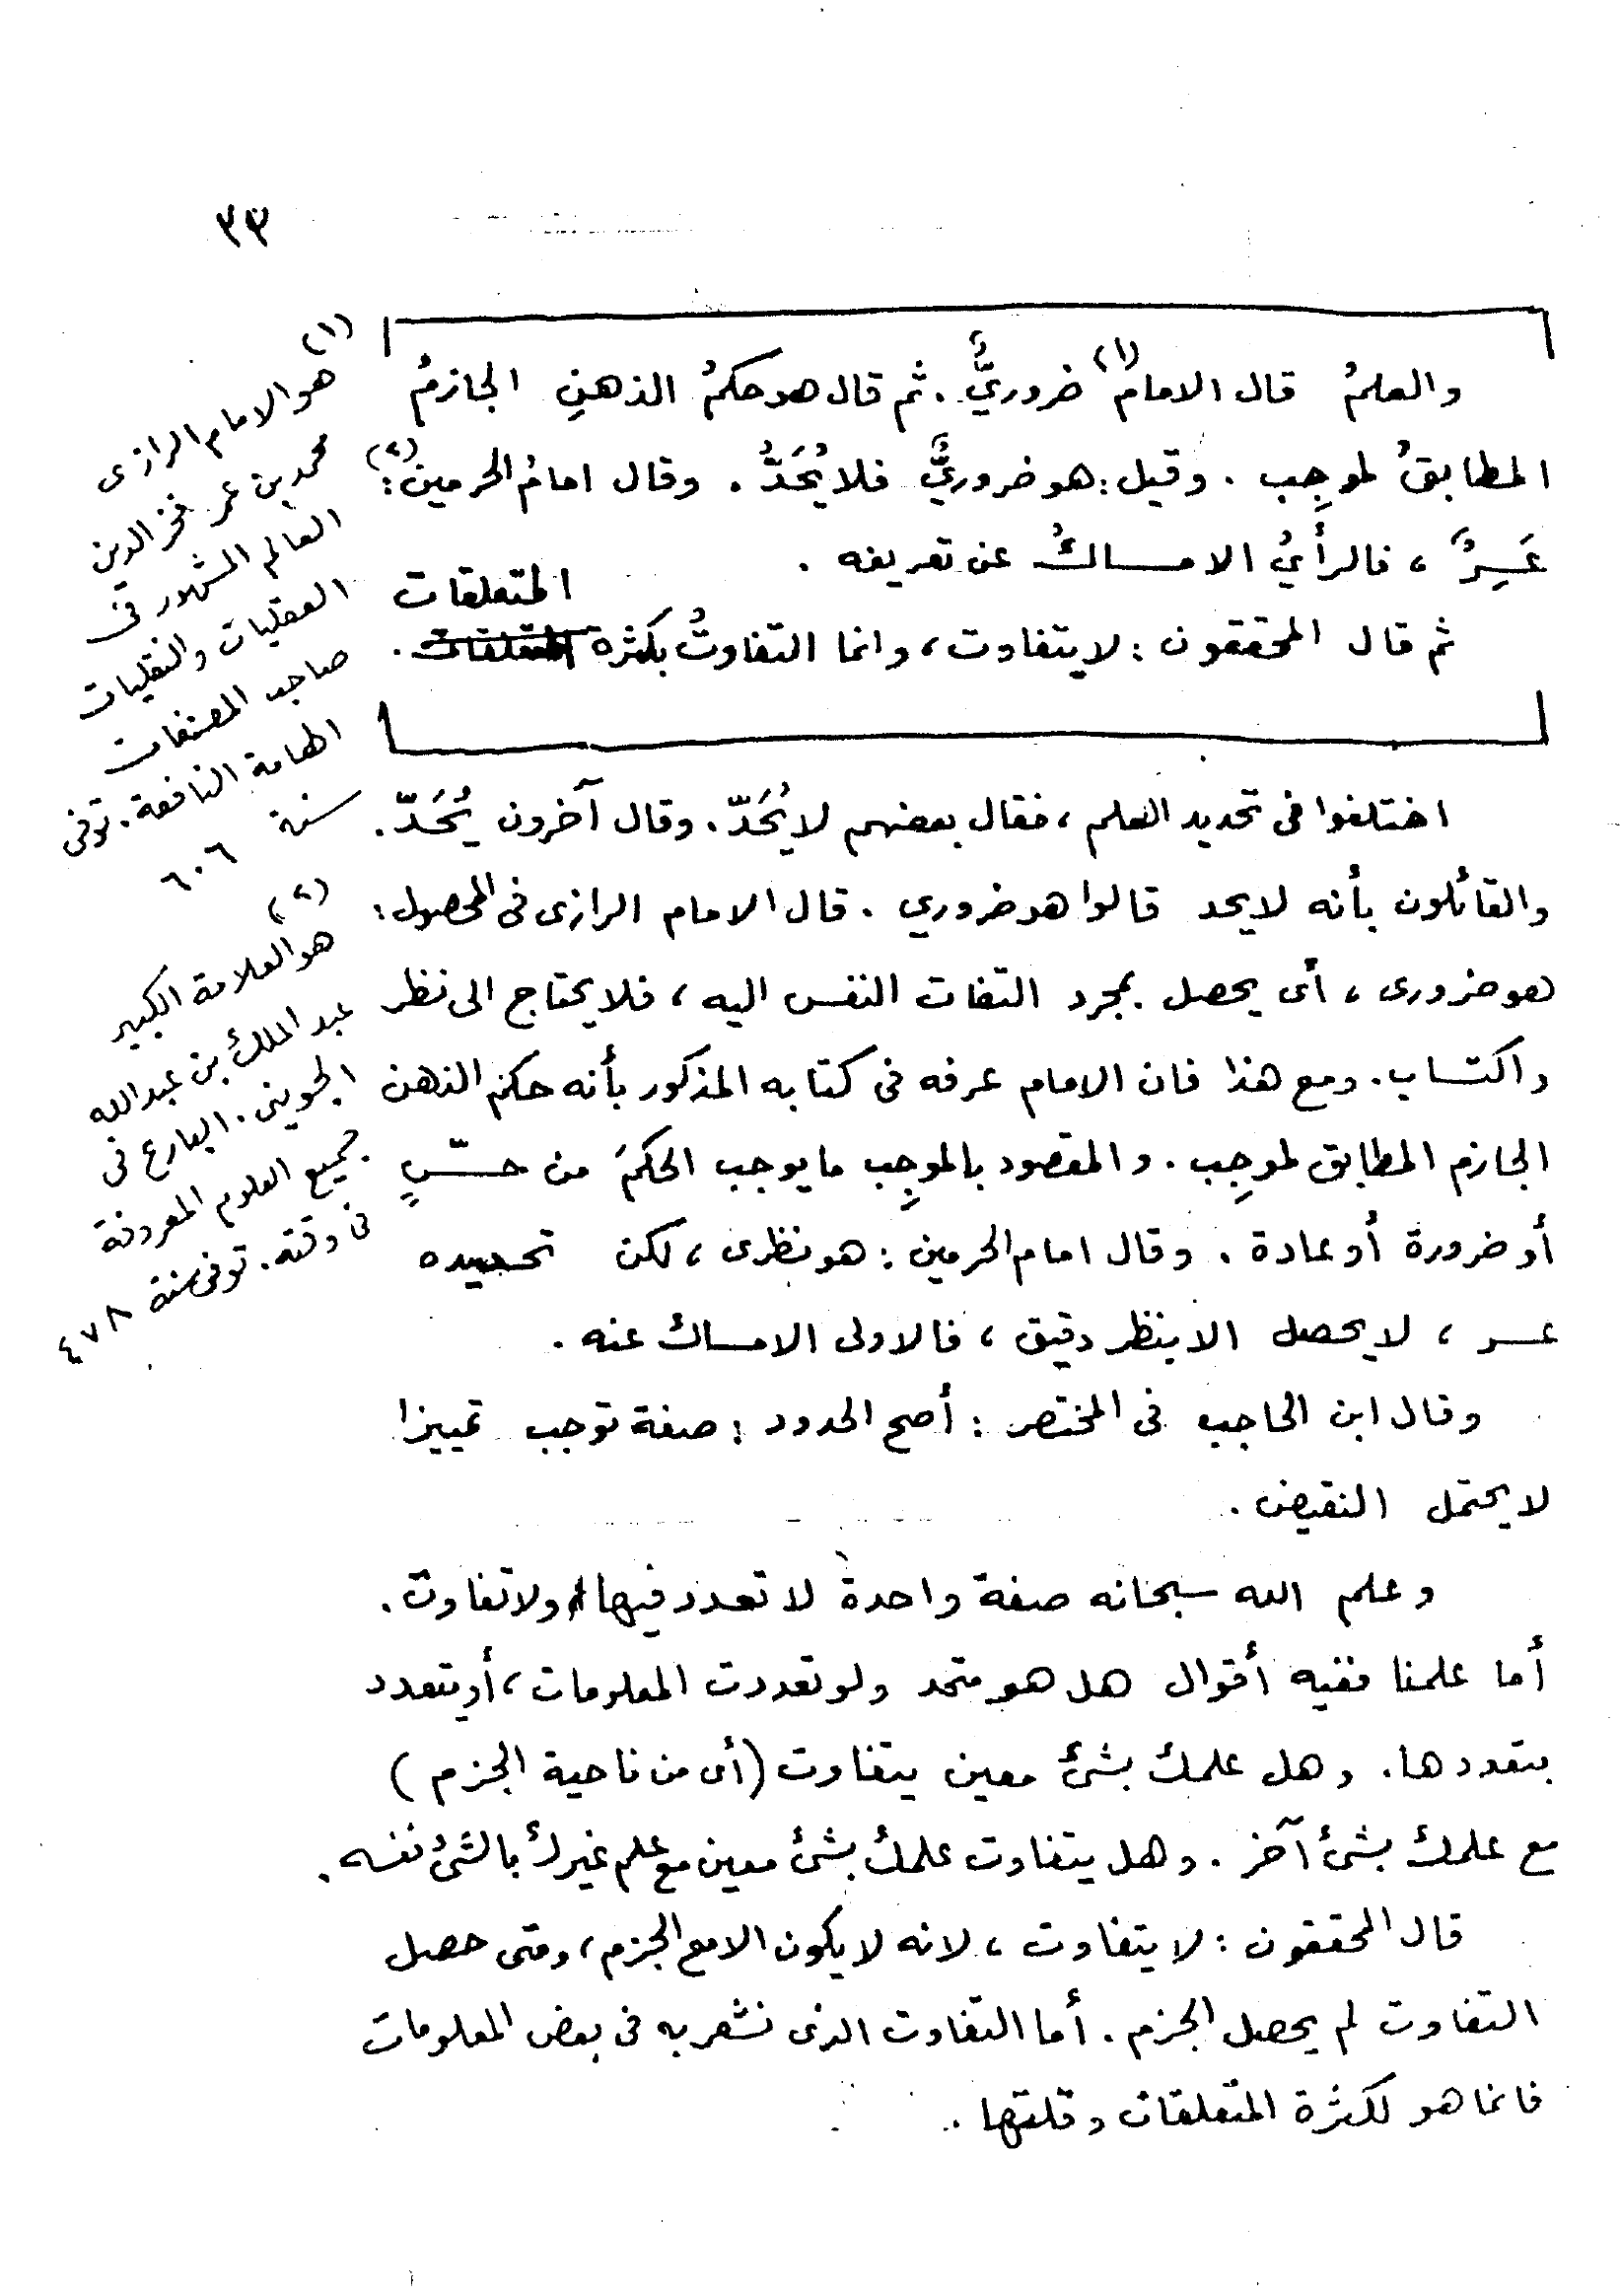 ٣٣
والعلمُ قال الامامُ (١) ضروريٌّ. ثم قال هو حكمُ الذهنِ الجازمُ
المطابقُ لموجِب. وقيل: هو ضروريٌّ فلا يُحَدُّ. وقال امامُ الحرمين (٢):
عَسِرٌ، فالرأيُ الامساكُ عن تعريفه.
المتعلقات
ثم قال المحققون: لا يتفاوت، وانما التفاوتُ بكثرة المتعلقات.
اختلفوا فى تحديد العلم، فقال بعضهم لا يُحَدّ. وقال آخرون يُحَدّ.
والقائلون بأنه لا يحد قالوا هو ضروري. قال الامام الرازى فى المحصول:
هو ضرورى، أى يحصل بمجرد التفات النفس اليه، فلا يحتاج الى نظر
واكتساب. ومع هذا فان الامام عرفه فى كتابه المذكور بأنه حكم الذهن
الجازم المطابق لموجِب. والمقصود بالموجِب ما يوجب الحكمَ من حسٍّ
أو ضرورة أو عادة. وقال امام الحرمين: هو نظرى، لكن تحديده
عسر، لا يحصل الا بنظر دقيق، فالاولى الامساك عنه.
وقال ابن الحاجب فى المختصر: أصح الحدود: صفة توجب تمييزا
لا يحتمل النقيض.
وعلم الله سبحانه صفة واحدة لا تعدد فيها ولا تفاوت.
أما علمنا ففيه أقوال هل هو متحد ولو تعددت المعلومات، أو يتعدد
بتعددها. وهل علمك بشئ معين يتفاوت (أى من ناحية الجزم)
مع علمك بشئ آخر. وهل يتفاوت علمك بشئ معين مع علم غيرك بالشئ نفسه.
قال المحققون: لا يتفاوت، لانه لا يكون الا مع الجزم، ومتى حصل
التفاوت لم يحصل الجزم. أما التفاوت الذى نشعر به فى بعض المعلومات
فانما هو لكثرة المتعلقات وقلتها.
(١)
هو الامام الرازى
محمد بن عمر فخر الدين
العالم المشهور فى
العقليات والنقليات
صاحب المصنفات
الهامة النافعة. توفى
سنة ٦٠٦
(٢)
هو العلامة الكبير
عبد الملك بن عبد الله
الجوينى. البارع فى
جميع العلوم المعروفة
فى وقته. توفى سنة ٤٧٨